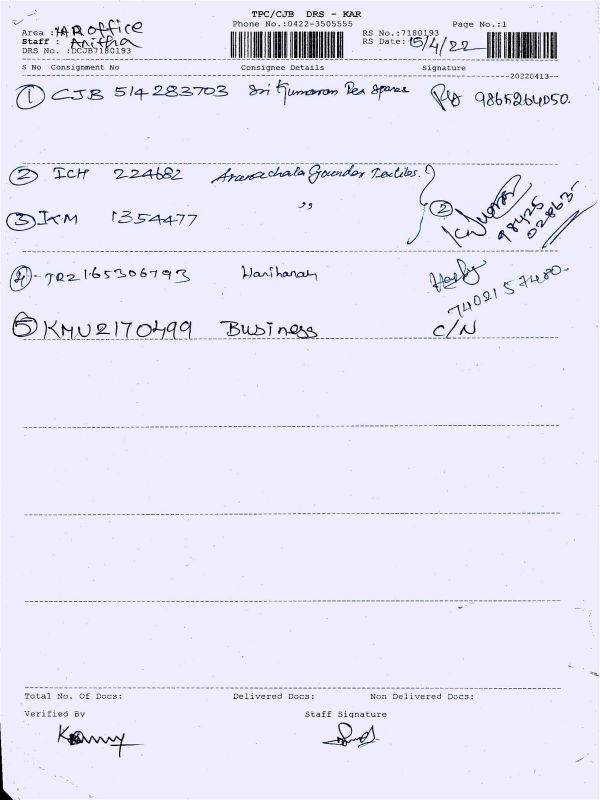 TPC/CJB DRS - KAR
Phone No.:0422-3505555 Page No.:1
Area : KAR office RS No.:7180193
Staff : Anitha RS Date: 15/4/22
DRS No. :DCJB7180193
S No Consignment No Consignee Details Signature
20220413
① CJB 514283703 Sri Kumaran Tex Spares 9865264050.
② ICH 224682 Arunachala Gounder Textiles. ②
③ IKM 1354477 ,, 98425
02863
④ - TRZ 165306793 Hariharan
7402157480.
⑤ KMU2170499 Business C/N
Total No. Of Docs: Delivered Docs: Non Delivered Docs:
Verified By Staff Signature